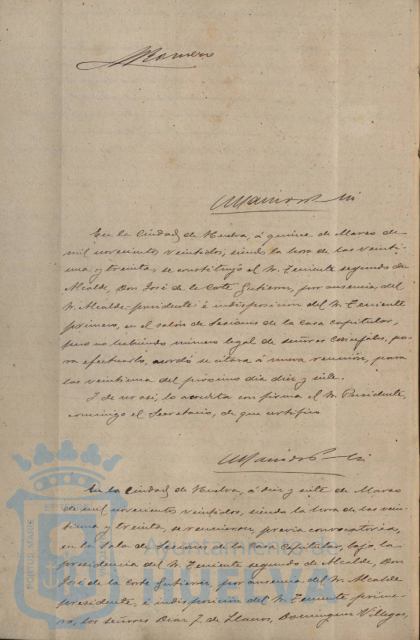 Romero
En la Ciudad de Huelva, á quince de Marzo de
mil novecientos veintidos, siendo la hora de las veinti-
una y treinta, se constituyó el Sr. Teniente segundo de
Alcalde, Don José de la Corte Gutierrez, por ausencia del
Sr. Alcalde-presidente é indisposicion del Sr. Teniente
primero, en el salón de Sesiones de la Casa capitular,
pero no habiendo número legal de señores Concejales, pa-
ra efectuarla, acordó se citara á nueva reunión, para
las veintiuna del proximo dia diez y siete.
Y de no asi, lo acredita con firma el Sr. Presidente,
conmigo el Secretario, de que certifico
En la Ciudad de Huelva, á diez y siete de Marzo
de mil novecientos veintidos, siendo la hora de las vein-
tiuna y treinta, se reunieron, previa convocatoria,
en la Sala de Sesiones de la Casa Capitular, bajo la
presidencia del Sr. Teniente segundo de Alcalde, Don
José de la Corte Gutierrez, por ausencia del Sr. Alcalde
presidente, é indisposicion del Sr. Teniente prime-
ro, los señores Diaz F. de Llanos, Dominguez Villegas,
Ayuntamiento de
HUELVA
PORTUS MARIS